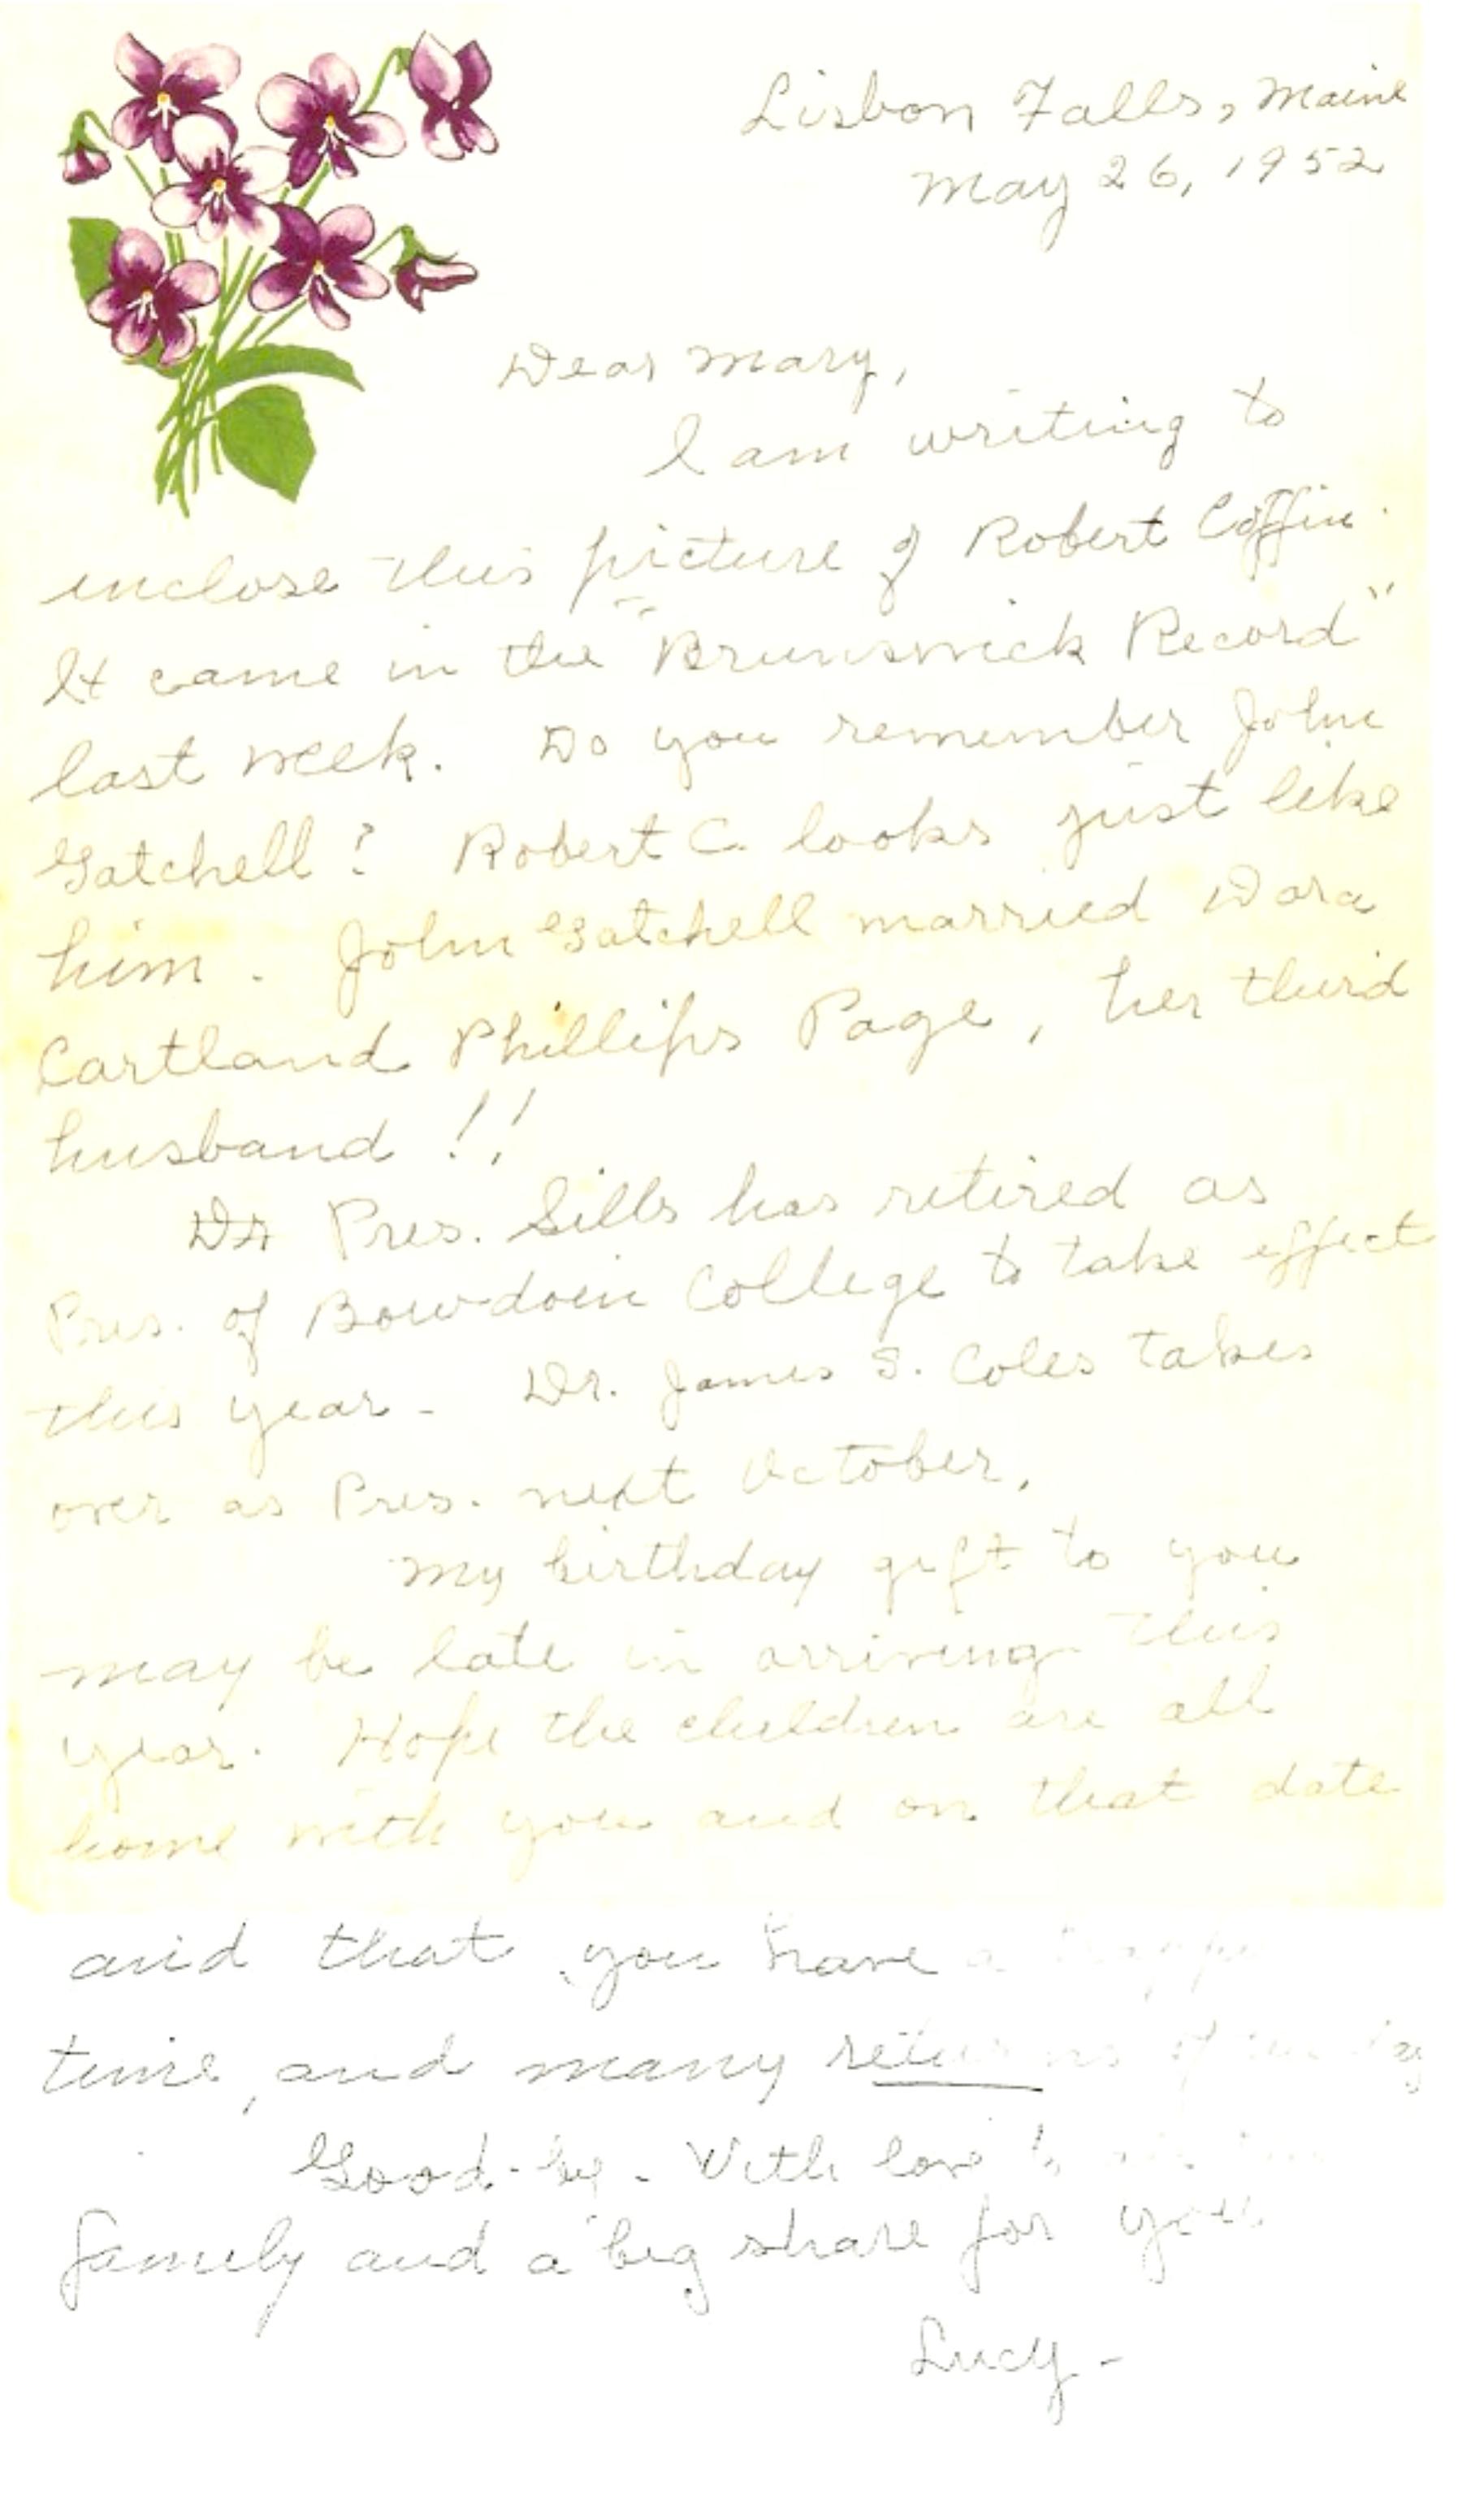 Lisbon Falls, Maine
May 26, 1952
Dear Mary,
I am writing to
inclose this picture of Robert Coffin.
It came in the "Brunswick Record"
last week. Do you remember John
Gatchell? Robert C. looks just like
him. John Gatchell married Dora
Cartland Phillips Page, her third
husband!!
Dr Pres. Sills has retired as
Pres. of Bowdoin College to take effect
this year. Dr. James S. Coles takes
over as Pres. next October.
My birthday gift to you
may be late in arriving this
year. Hope the children are all
home with you and on that date
and that you have a happy
time, and many returns of the day
Good-by. With love to
family and a big share for you
Lucy-